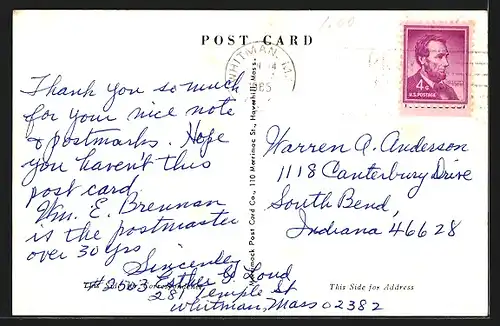 1.00
POST CARD
WHITMAN, M
14
1965
4¢
U.S. POSTAGE
Thank you so much
for your nice note
& postmarks. Hope
you haven't this
post card.
Wm. E. Brennan
is the postmaster
over 30 yrs
Sincerely
#2503 Esther G. Loud
281 Temple St
Whitman, Mass 02382
Post Card Co., 110 Merrimac St., Haverhill, Mass.
Warren A. Anderson
1118 Canterbury Drive
South Bend,
Indiana 46628
This Side for Address